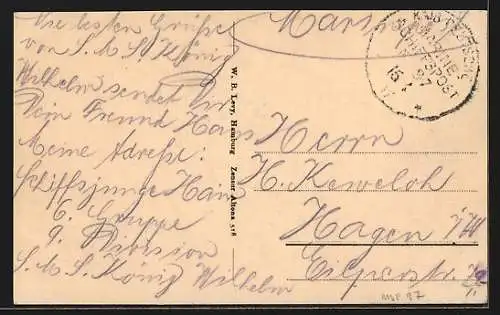 Die besten Grüße
von S. M. S. König
Wilhelm sendet Dir
Dein Freund Hans
Meine Adresse:
Schiffsjunge Hain
6. Gruppe
9. Division
S. M. S. König Wilhelm
W. B. Levy, Hamburg Zenner Altona 518
KAIS. DEUTSCHE
MARINE-
SCHIFFSPOST
No 97
15
17
*
Herrn
H. Keweloh
Hagen i/W
Eilperstr.
MSP 97